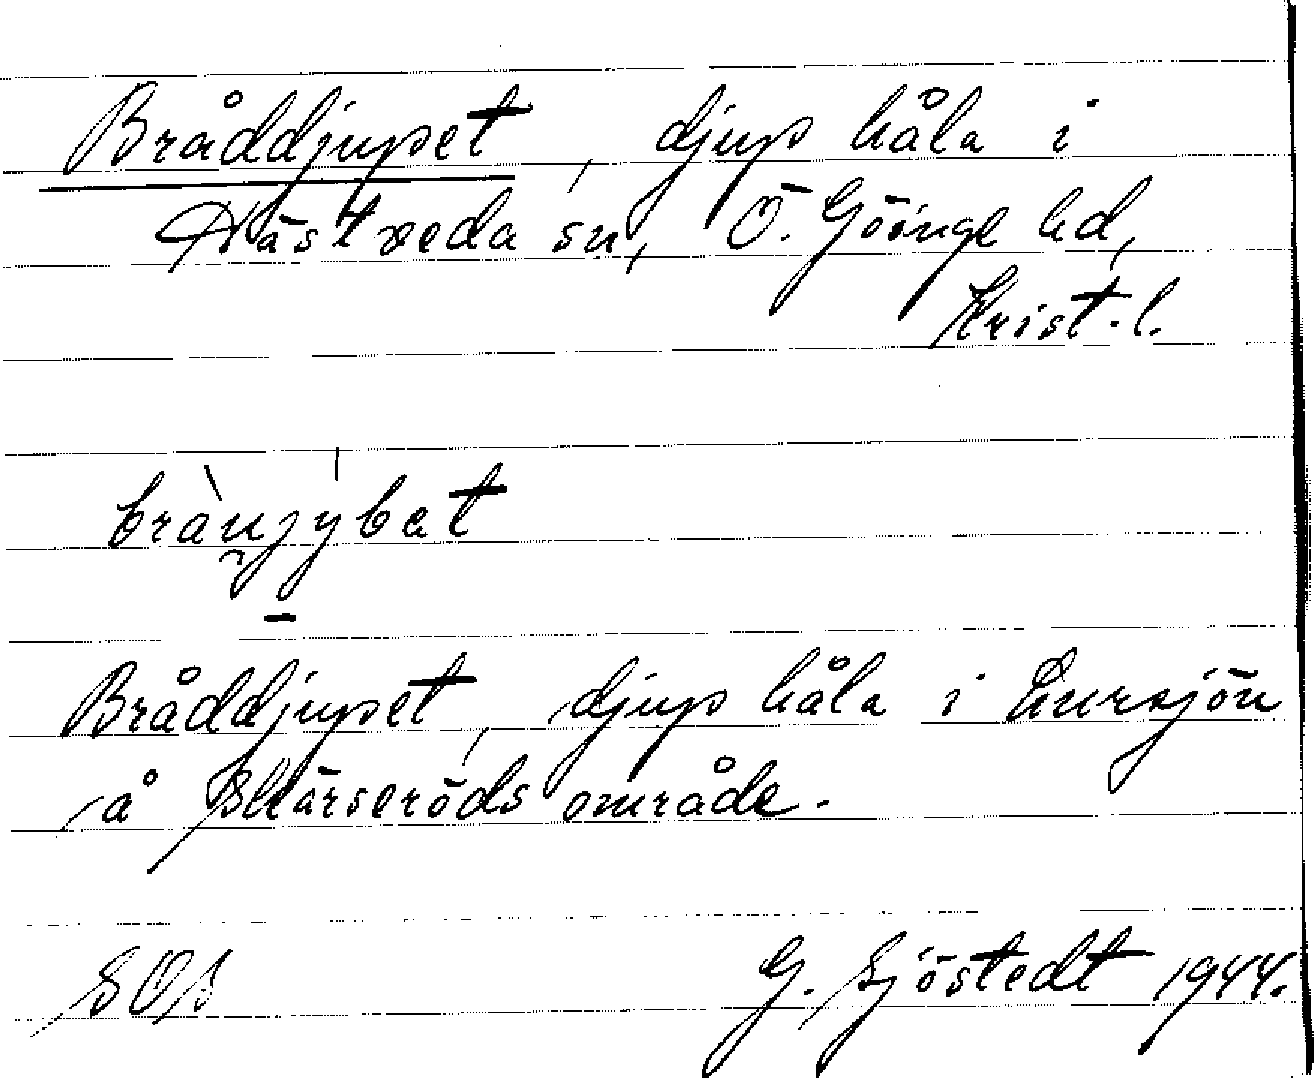 Bråddjupet, djup håla i
Hästveda sn, Ö. Göinge hd,
Krist. l.
Bråddjupet, djup håla i Lursjön
å Skärseröds område.
SOS G. Sjöstedt 1944.